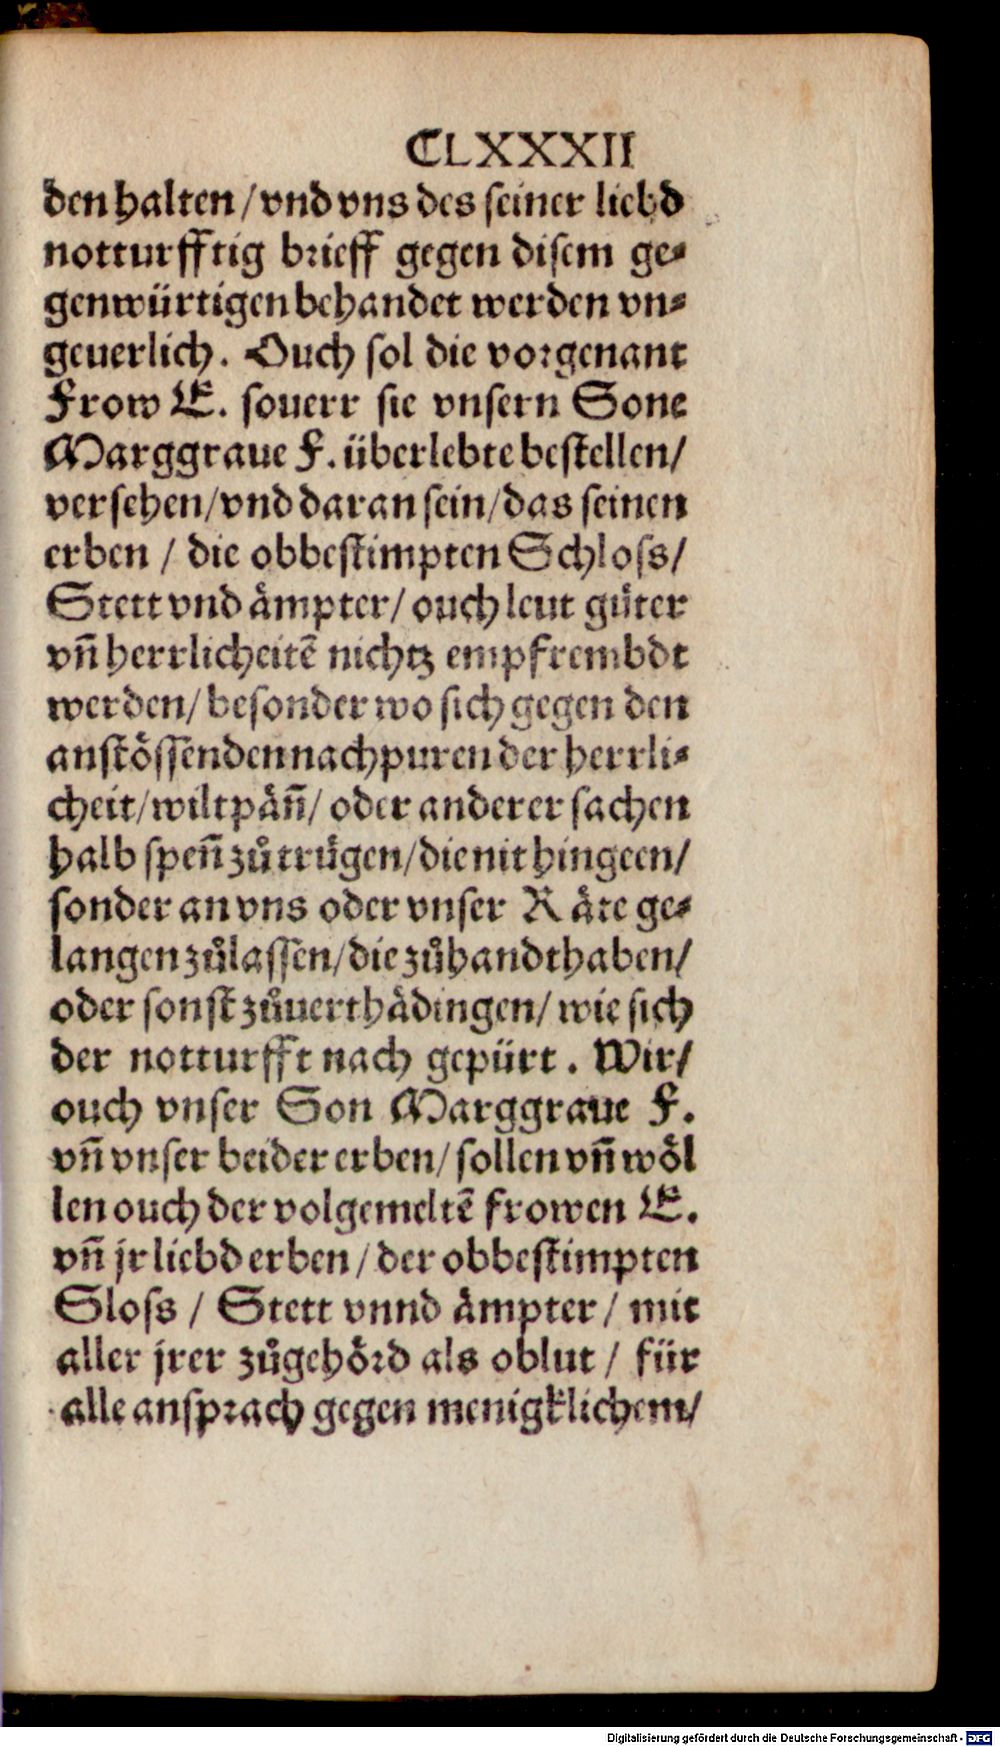 CLXXXII
den halten / vnd vns des seiner liebd
notturfftig brieff gegen disem ge⸗
genwürtigen behandet werden vn⸗
geuerlich. Ouch sol die vorgenant
Frow E. souerr sie vnsern Sone
Marggraue F. überlebte bestellen/
versehen/ vnd daran sein/ das seinen
erben / die obbestimpten Schloss/
Stett vnd aͤmpter/ ouch leut guͤter
vñ herrlicheitẽ nichtz empfrembdt
werden/ besonder wo sich gegen den
anstoͤssenden nachpuren der herrli⸗
cheit/ wiltpaͤñ/ oder anderer sachen
halb speñ zuͦtruͤgen/ die nit hingeen/
sonder an vns oder vnser Raͤte ge⸗
langen zuͦlassen/ die zuͦhandthaben/
oder sonst zuͦuerthaͤdingen/ wie sich
der notturfft nach gepürt. Wir/
ouch vnser Son Marggraue F.
vñ vnser beider erben/ sollen vñ woͤl
len ouch der volgemeltẽ frowen E.
vñ jr liebd erben / der obbestimpten
Sloss / Stett vnnd aͤmpter / mit
aller jrer zuͦgehoͤrd als oblut / für
alle ansprach gegen menigklichem/
Digitalisierung gefördert durch die Deutsche Forschungsgemeinschaft - DFG